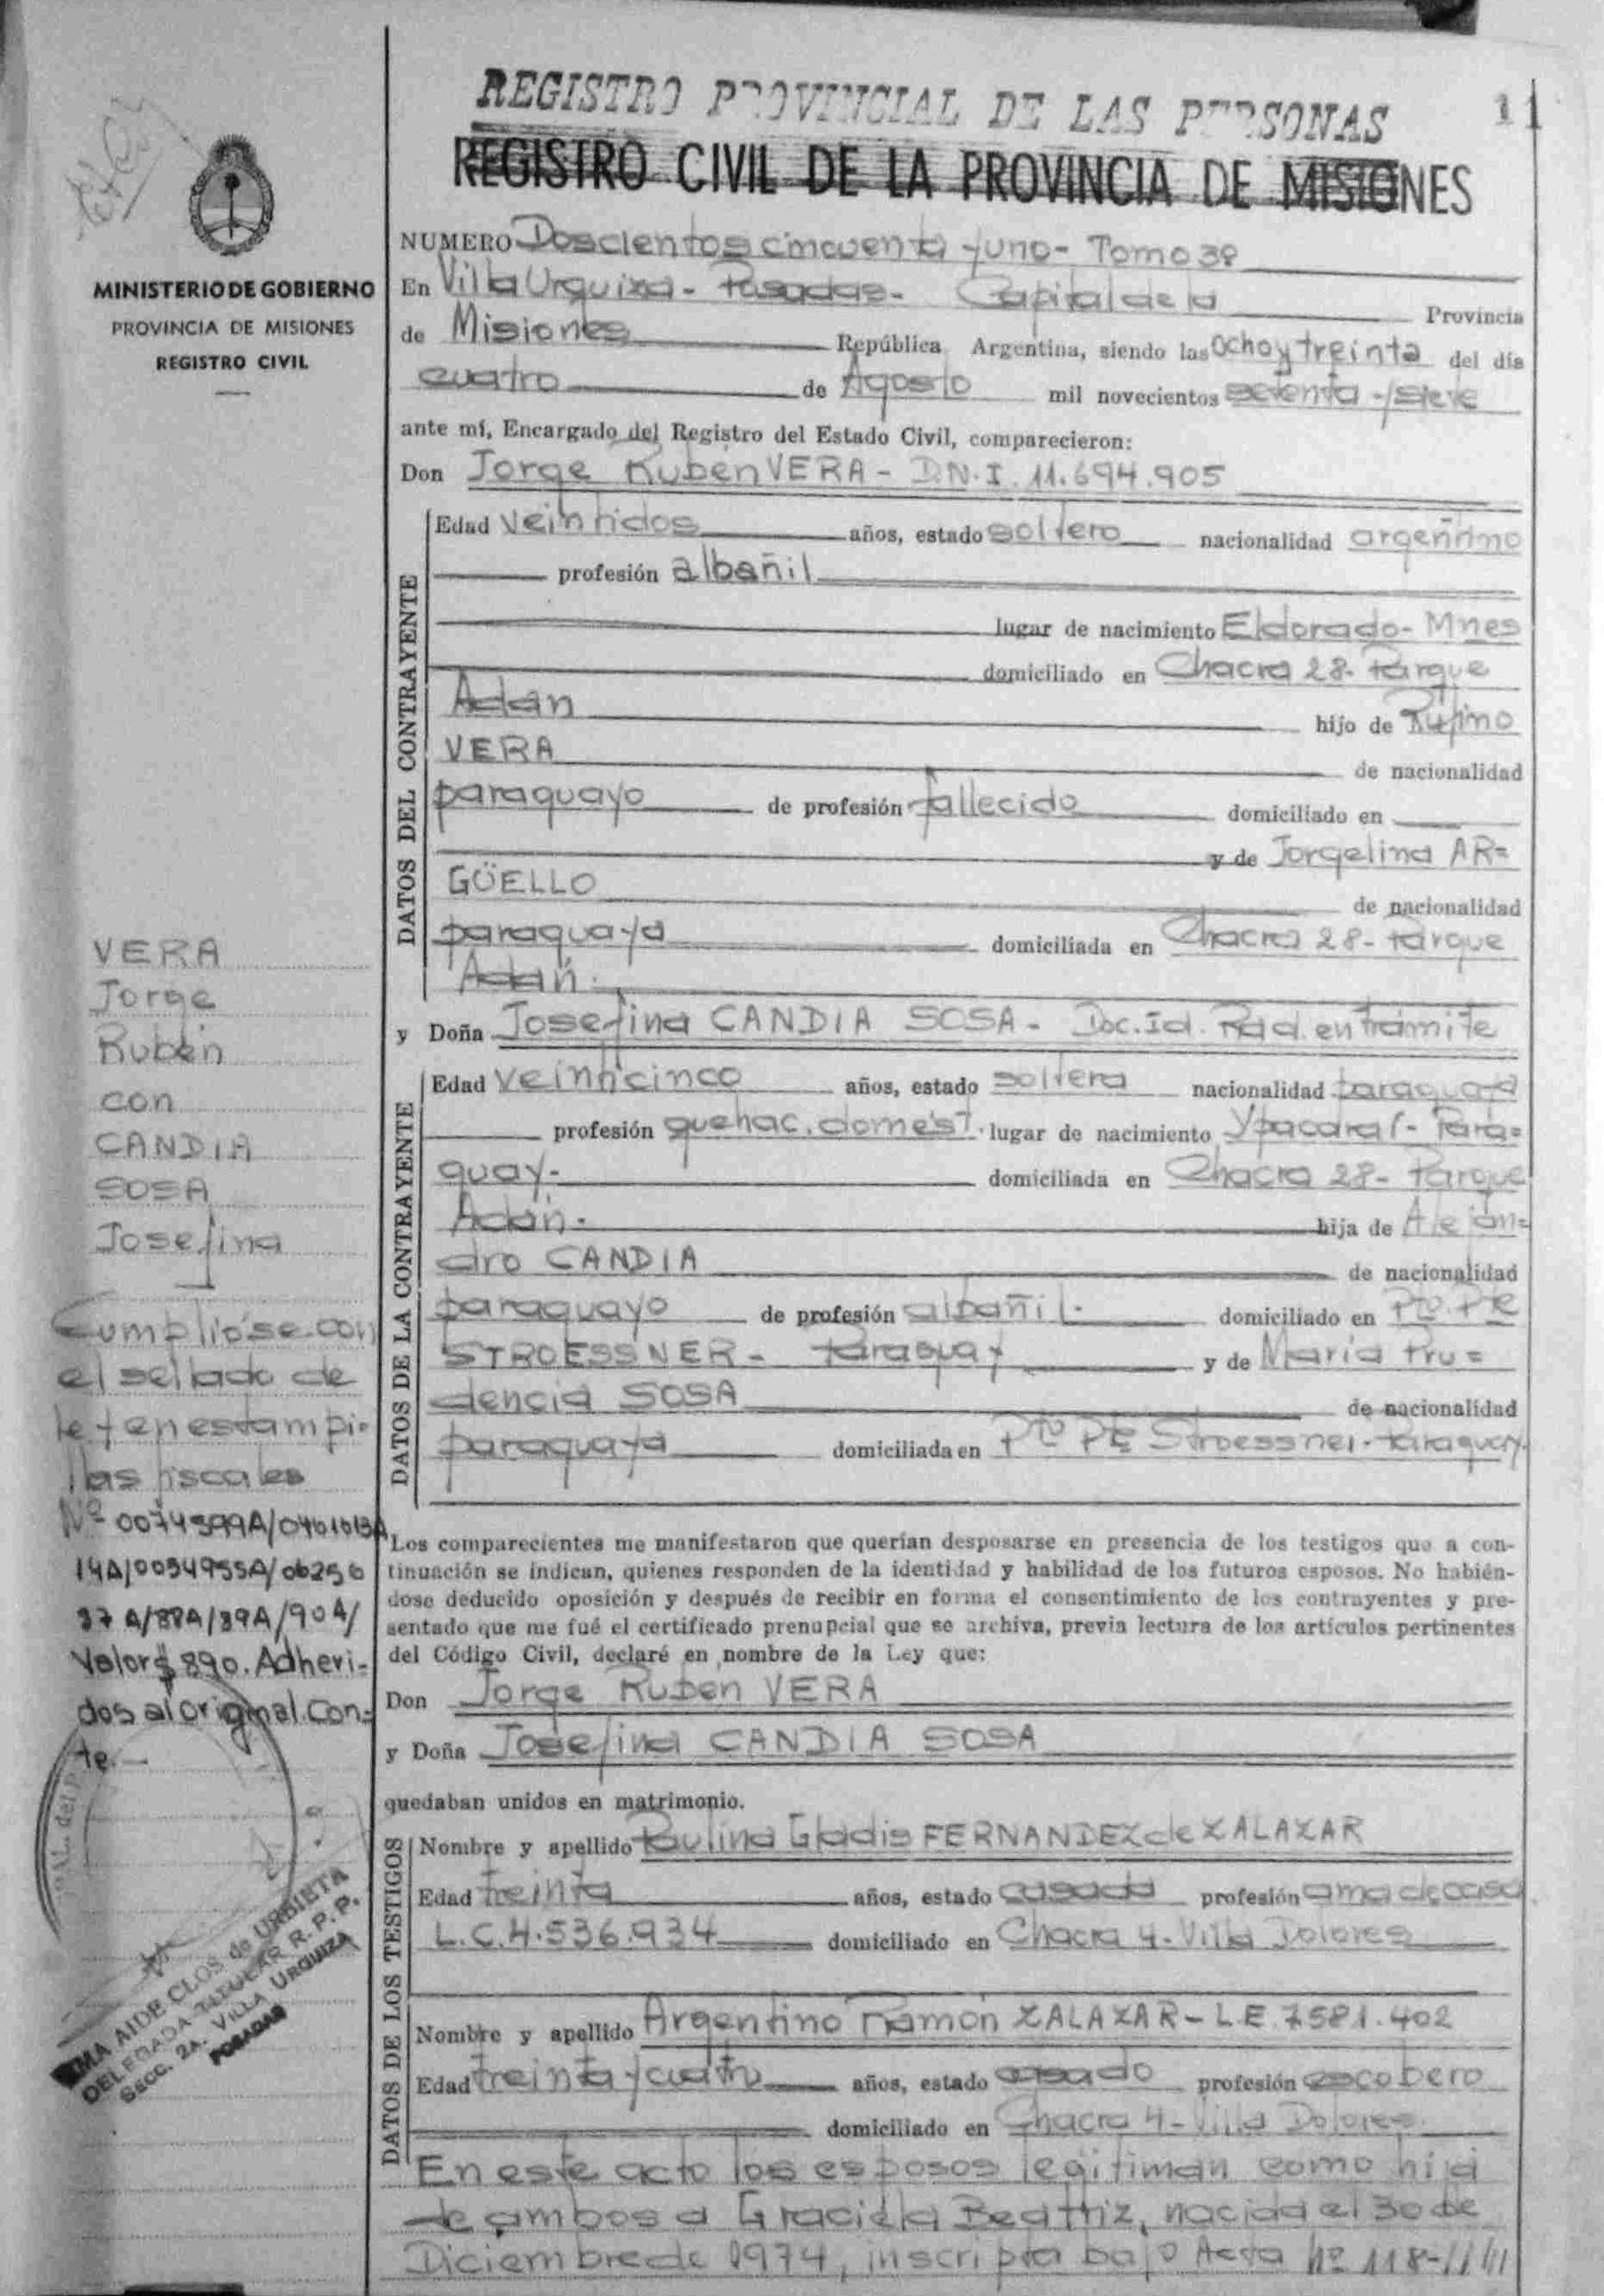 11
REGISTRO PROVINCIAL DE LAS PERSONAS
REGISTRO CIVIL DE LA PROVINCIA DE MISIONES
MINISTERIO DE GOBIERNO
PROVINCIA DE MISIONES
REGISTRO CIVIL
NUMERO Doscientos cincuenta y uno - Tomo 3º
En Villa Urquiza - Posadas - Capital de la Provincia
de Misiones República Argentina, siendo las ocho y treinta del día
cuatro de Agosto mil novecientos setenta y siete
ante mí, Encargado del Registro del Estado Civil, comparecieron:
Don Jorge Rubén VERA - D.N.I. 11.694.905
DATOS DEL CONTRAYENTE
Edad veintidos años, estado soltero nacionalidad argentino
profesión albañil
lugar de nacimiento Eldorado - Mnes
domiciliado en Chacra 28 - Parque
Adán hijo de Rufino
VERA de nacionalidad
paraguayo de profesión fallecido domiciliado en
y de Jorgelina AR=
GÜELLO de nacionalidad
paraguaya domiciliada en Chacra 28 - Parque
Adán.
y Doña Josefina CANDIA SOSA - Doc. Id. Rad. en trámite
DATOS DE LA CONTRAYENTE
Edad veinticinco años, estado soltera nacionalidad paraguaya
profesión quehac. domést. lugar de nacimiento Ypacaraí - Para=
guay - domiciliada en Chacra 28 - Parque
Adán. hija de Alejan=
dro CANDIA de nacionalidad
paraguayo de profesión albañil. domiciliado en Pto. Pte
STROESSNER - Paraguay y de María Pru=
dencia SOSA de nacionalidad
paraguaya domiciliada en Pto Pte Stroessner - Paraguay.
Los comparecientes me manifestaron que querían desposarse en presencia de los testigos que a con-
tinuación se indican, quienes responden de la identidad y habilidad de los futuros esposos. No habién-
dose deducido oposición y después de recibir en forma el consentimiento de los contrayentes y pre-
sentado que me fué el certificado prenupcial que se archiva, previa lectura de los artículos pertinentes
del Código Civil, declaré en nombre de la Ley que:
Don Jorge Rubén VERA
y Doña Josefina CANDIA SOSA
quedaban unidos en matrimonio.
DATOS DE LOS TESTIGOS
Nombre y apellido Paulina Gladis FERNANDEZ de ZALAZAR
Edad treinta años, estado casada profesión ama de casa
L.C. 4.536.934 domiciliado en Chacra 4 - Villa Dolores
Nombre y apellido Argentino Ramón ZALAZAR - L.E. 7581.402
Edad treinta y cuatro años, estado casado profesión escobero
domiciliado en Chacra 4 - Villa Dolores
En este acto los esposos legitiman como hija
de ambos a Graciela Beatriz, nacida el 30 de
Diciembre de 1974, inscripta bajo Acta Nº 118-
VERA
Jorge
Rubén
con
CANDIA
SOSA
Josefina
Cumplióse con
el sellado de
ley en estampi-
llas fiscales
Nº 0074599A/
14A/0054955A/06256
37A/88A/89A/90A/
Valor $ 890. Adheri=
dos al original. Con=
te.
AIDE CLOS de URBIETA
DELEGADA TITULAR R.P.P.
SECC. 2A. VILLA URQUIZA
POSADAS